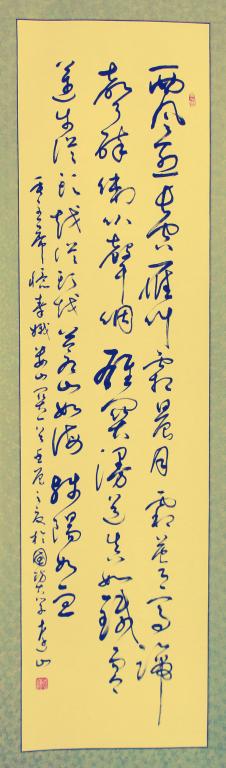 西风烈长空雁叫霜晨月霜晨月马蹄
声碎喇叭声咽雄关漫道真如铁而今
迈步从头越从头越苍山如海残阳如血
毛主席忆秦娥娄山关一首辰之夏于国防大学山